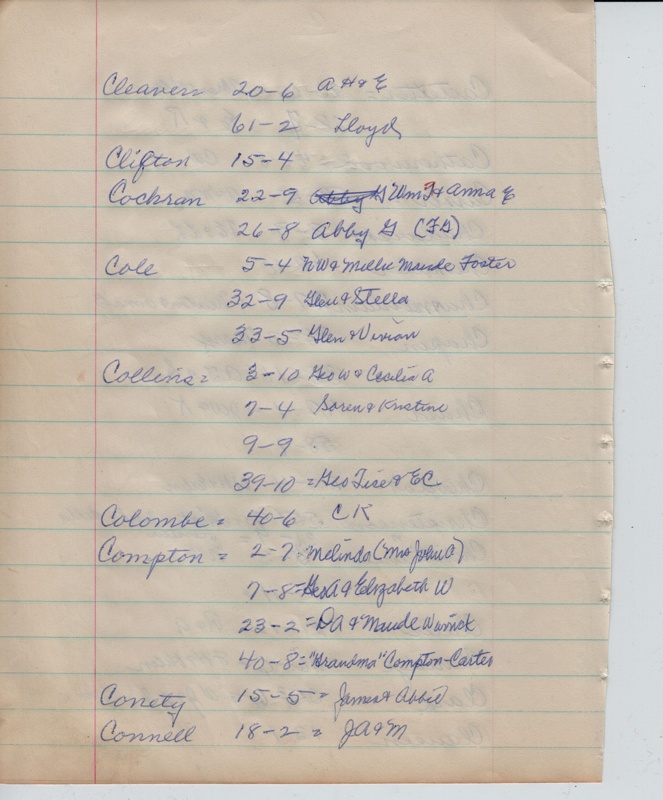 Cleaver = 20-6 A H & E
61-2 Lloyd
Clifton 15-4
Cochran 22-9 Abby G Wm H & Anna E
26-8 Abby G (FG)
Cole 5-4 N W & Millie Maude Foster
32-9 Glen & Stella
33-5 Glen & Vivian
Collins = 3-10 Geo W & Cecilia A
7-4 Soren & Kristine
9-9
39-10 = Geo Tise & EC
Colombe = 40-6 C K
Compton = 2-7 Melinda (Mrs John A)
7-8 = Geo A & Elizabeth W
23-2 = D A & Maude Warnick
40-8 = "Grandma" Compton-Carter
Conety 15-5 = James & Abbie
Connell 18-2 = J A & M